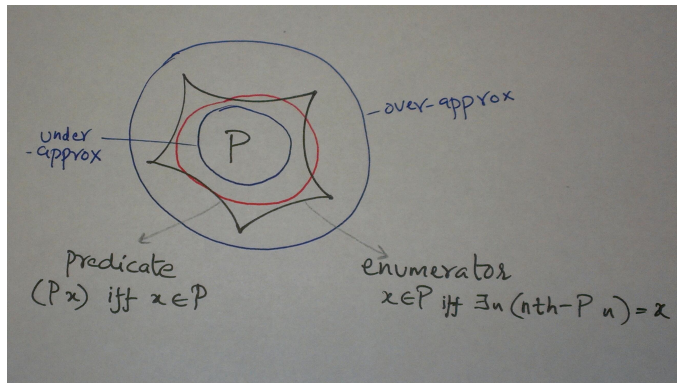 over-approx
under
-approx
P
predicate
(P x) iff x ∈ P
enumerator
x∈P iff ∃n (nth-P n) = x